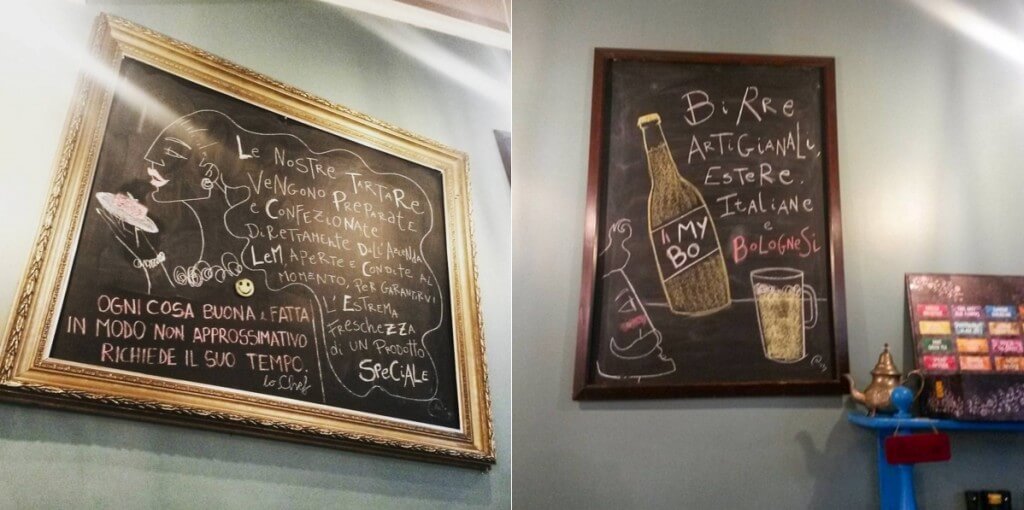 Le NOSTRE TARTARE
VENGONO PREPARATE
e CONFEZIONATE
DIRETTAMENTE DALL'AZIENDA
LEM APERTE E CONDITE AL
MOMENTO, PER GARANTIRVI
L'ESTREMA
FRESCHEZZA
DI UN PRODOTTO
SPECIALE
OGNI COSA BUONA e FATTA
IN MODO NON APPROSSIMATIVO
RICHIEDE IL SUO TEMPO.
Lo Chef
BiRRe
ARTiGiANALi,
ESTERE,
ITALIANE
e
BOLOGNESI
MY
BO